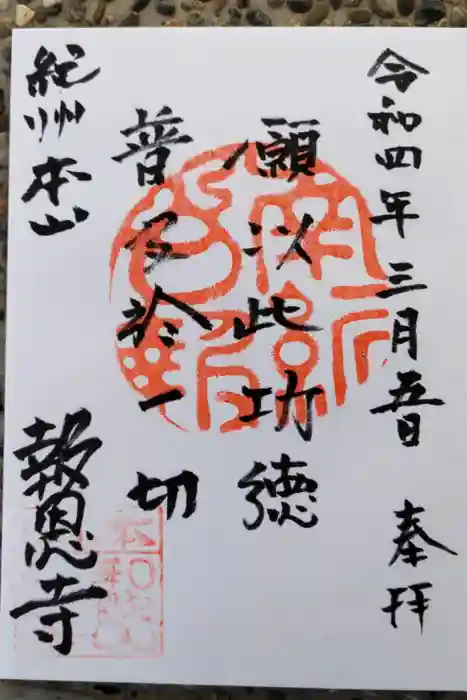 令和四年三月五日 奉拝
願以此功徳
普及於一切
紀州本山
報恩寺